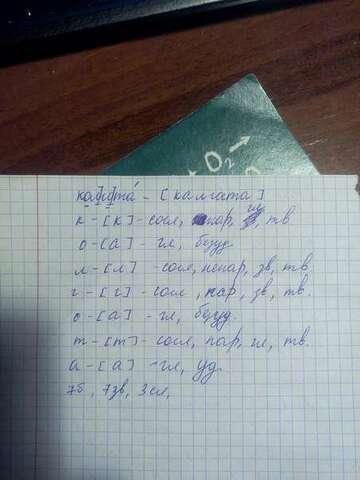 O₂ →
колгота́ - [калгата]
к - [к] - согл, пар, гл, тв
о - [а] - гл, безуд.
л - [л] - согл, непар, зв, тв.
г - [г] - согл, пар, зв, тв.
о - [а] - гл, безуд.
т - [т] - согл, пар, гл, тв.
а - [а] - гл, уд.
7б, 7зв, 3сл,